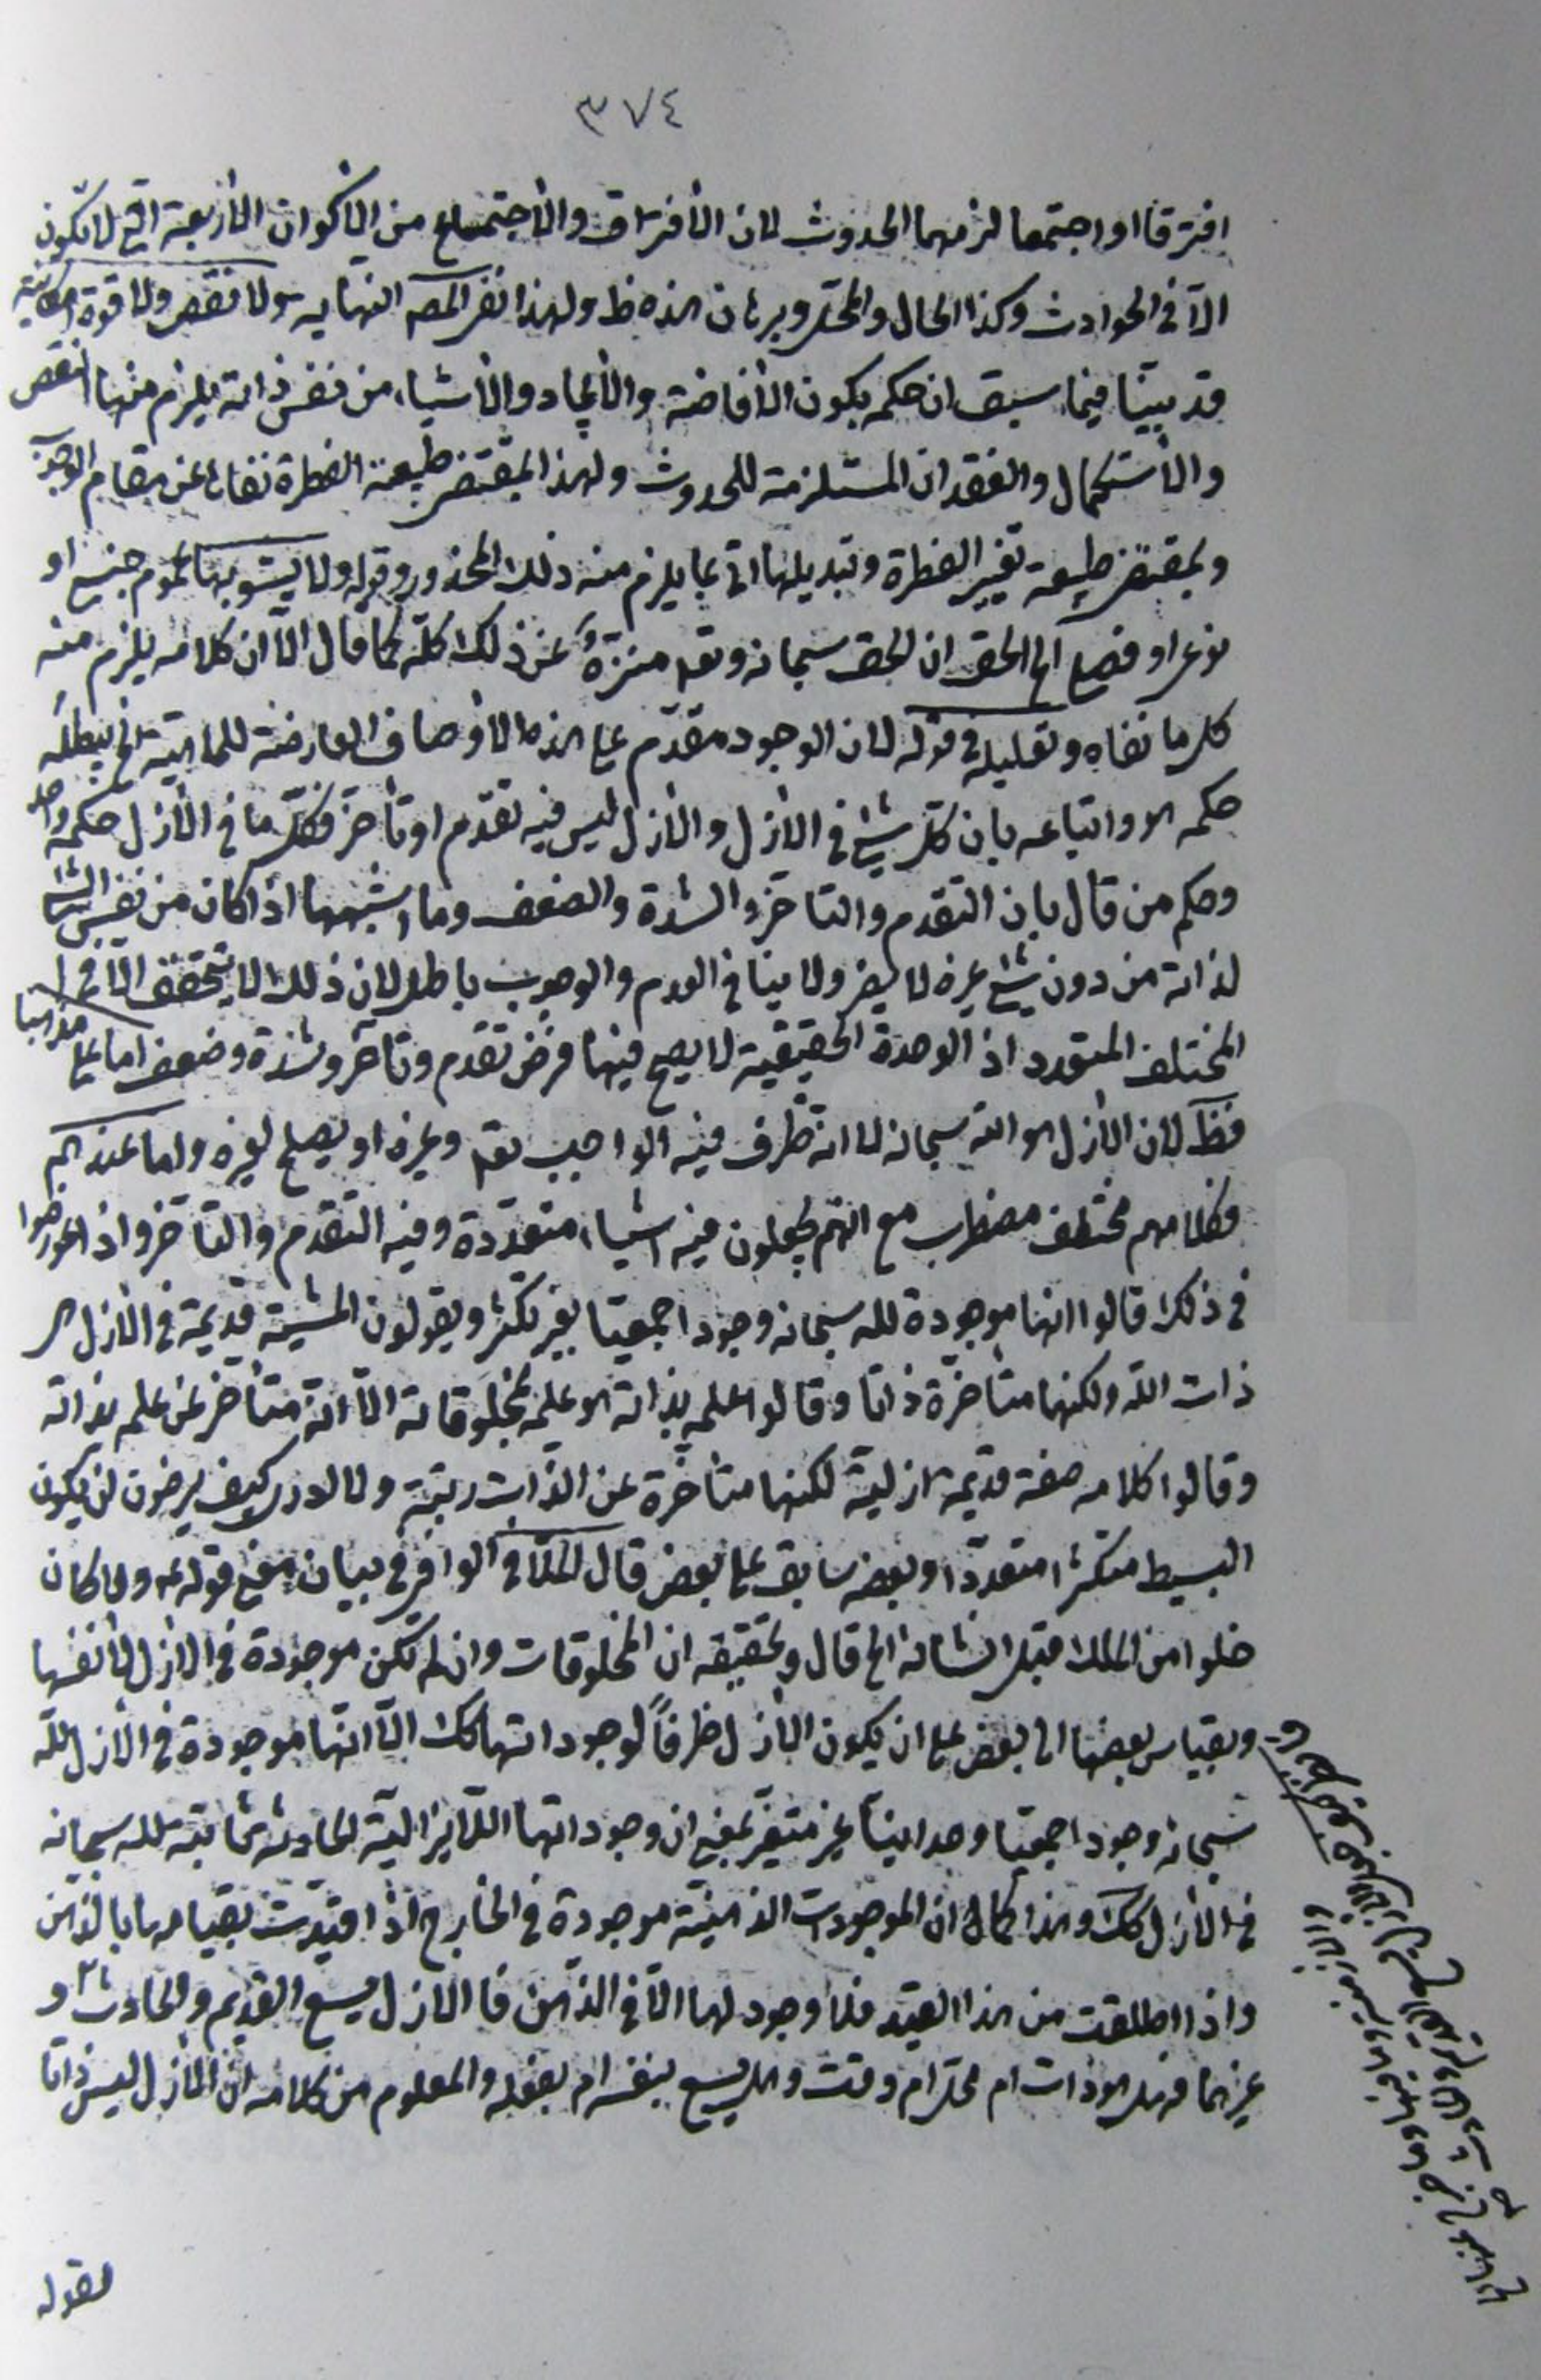 ٣٧٤
افترقا او اجتمعا لزمهما الحدوث لان الأفتراق والأجتماع من الأكوان الأربعة التي لا تكون
الّا في الحوادث وكذا الحال والمحل وبرهان هذه ظ ولهذا نفى المص النهاية ولا نقص ولا قوة امكانية
قد بيّنا فيما سبق ان حكمه بكون الأفاضة والأيجاد والأشياء من نفس ذاته يلزم منها النقص
والأستكمال والفقدان المستلزمة للحدوث ولهذا بمقتضى طبيعة الفطرة نفاها عن مقام الوجوب
وبمقتضى طبيعة تغيير الفطرة وتبديلها اتى بما يلزم منه ذلك المحذور وقوله ولا يشوبها عموم جنسي او
نوعي او فصلي الخ الحق ان الحق سبحانه وتعه منزّه عن ذلك كلّه كما قال الّا ان كلامه يلزم منه
كل ما نفاه وتعليله في قوله لان الوجود مقدّم على هذه الأوصاف العارضة للماهية الخ يبطله
حكمه هو واتباعه بان كل شيء في الأزل والأزل ليس فيه تقدم او تأخر فكل ما في الأزل حكمه واحد
وحكم من قال بان التقدم والتأخر والشدة والضعف وما اشبهها اذا كان من نفس الشيء
لذاته من دون شيء غيره لا يضر ولا ينافي القدم والوجوب باطل لان ذلك لا يتحقق الّا في
المختلف المتعدد اذ الوحدة الحقيقية لا يصح فيها فرض تقدم وتأخر وشدة وضعف اما على مذهبنا
فظ لان الأزل هو الله سبحانه لا انه ظرف فيه الواجب تعه وغيره او يصلح لغيره واما عندهم
فكلامهم مختلف مضطرب مع انهم يجعلون فيه اشياء متعدّدة وفيه التقدم والتأخر واذا عورضوا
في ذلك قالوا انها موجودة لله سبحانه وجودا جمعيا بغير تكثر ويقولون المشيّة قديمة في الأزل هي
ذات الله ولكنها متأخرة ذاتا وقالوا علمه بذاته هو علمه بمخلوقاته الّا انه متأخر عن علمه بذاته
وقالوا كلامه صفة قديمة ازلية لكنها متأخرة عن الذات رتبة ولا ادري كيف يرضون ان يكون
البسيط متكثرا متعددا وبعضه سابق على بعض قال الملّا في الوافي في بيان معنى قوله ع ولا كان
خلوا من الملك قبل انشائه الى قال وتحقيقه ان المخلوقات وان لم تكن موجودة في الازل لأنفسها
وبقياس بعضها الى بعض على ان يكون الأزل ظرفاً لوجوداتها كك الّا انها موجودة في الأزل لله
سبحانه وجودا جمعيا وحدانيّاً غير متغيّر بمعنى ان وجوداتها اللّايزالية الحادثة ثابتة لله سبحانه
في الأزل كك وهذا كما ان الموجودات الذهنيّة موجودة في الخارج اذا قيّدت بقيامها بالذّهن
واذا اطلقت من هذا القيد فلا وجود لها الّا في الذّهن فالازل يسع القديم والحادث و
غيرهما فهل هو ذات ام محل ام وقت وهل يسع بنفسه ام بفعله والمعلوم من كلامه ان الأزل ليس ذاتا
لقوله